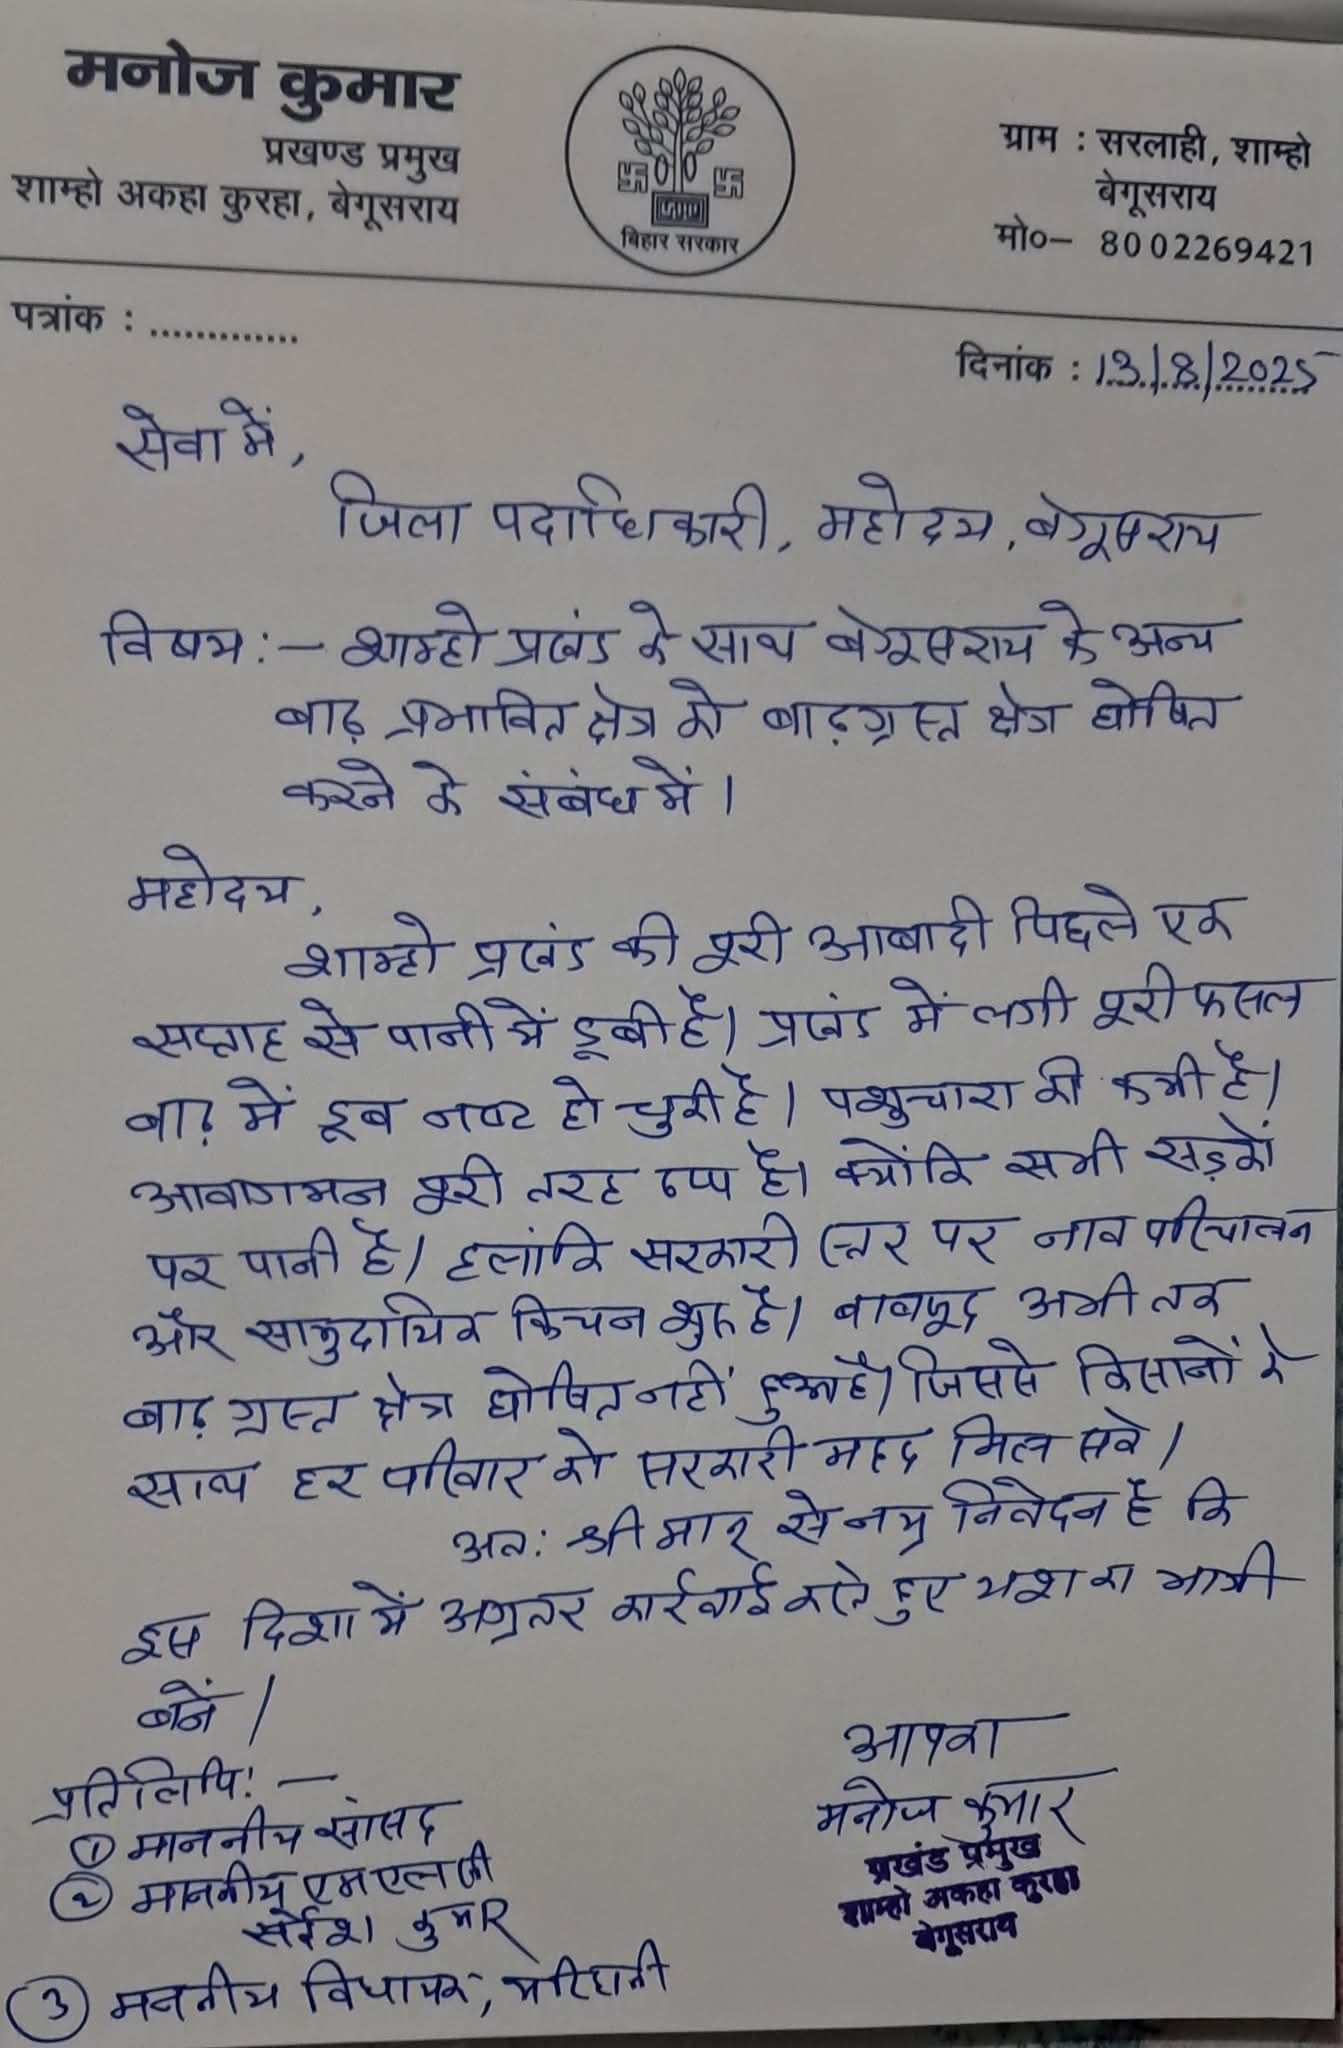 मनोज कुमार
प्रखण्ड प्रमुख
शाम्हो अकहा कुरहा, बेगूसराय
बिहार सरकार
ग्राम : सरलाही, शाम्हो
बेगूसराय
मो०– 8002269421
पत्रांक : .............
दिनांक : 13/8/2025
सेवा में,
जिला पदाधिकारी, महोदय, बेगूसराय
विषय :– शाम्हो प्रखंड के साथ बेगूसराय के अन्य
बाढ़ प्रभावित क्षेत्र को बाढ़ग्रस्त क्षेत्र घोषित
करने के संबंध में।
महोदय,
शाम्हो प्रखंड की पूरी आबादी पिछले एक
सप्ताह से पानी में डूबी है। प्रखंड में लगी पूरी फसल
बाढ़ में डूब नष्ट हो चुकी है। पशुचारा की कमी है।
आवागमन पूरी तरह ठप्प है। क्योंकि सभी सड़कों
पर पानी है। हलांकि सरकारी स्तर पर नाव परिचालन
और सामुदायिक किचन शुरू है। बावजूद अभी तक
बाढ़ ग्रस्त क्षेत्र घोषित नहीं हुआ है। जिससे किसानों के
साथ हर परिवार को सरकारी मदद मिल सके।
अतः श्रीमान् से नम्र निवेदन है कि
इस दिशा में अग्रतर कार्रवाई करते हुए यश का भागी
बनें।
प्रतिलिपि:–
① माननीय सांसद
② माननीय एमएलसी
कुमार
③ माननीय विधायक, मटिहानी
आपका
मनोज कुमार
प्रखंड प्रमुख
शाम्हो अकहा कुरहा
बेगूसराय